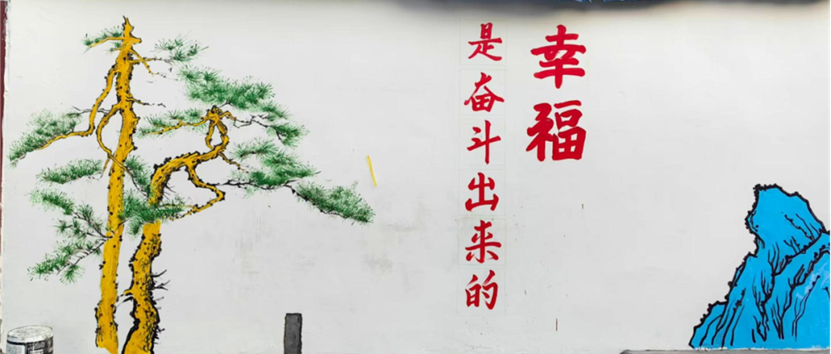 幸福
是奋斗出来的